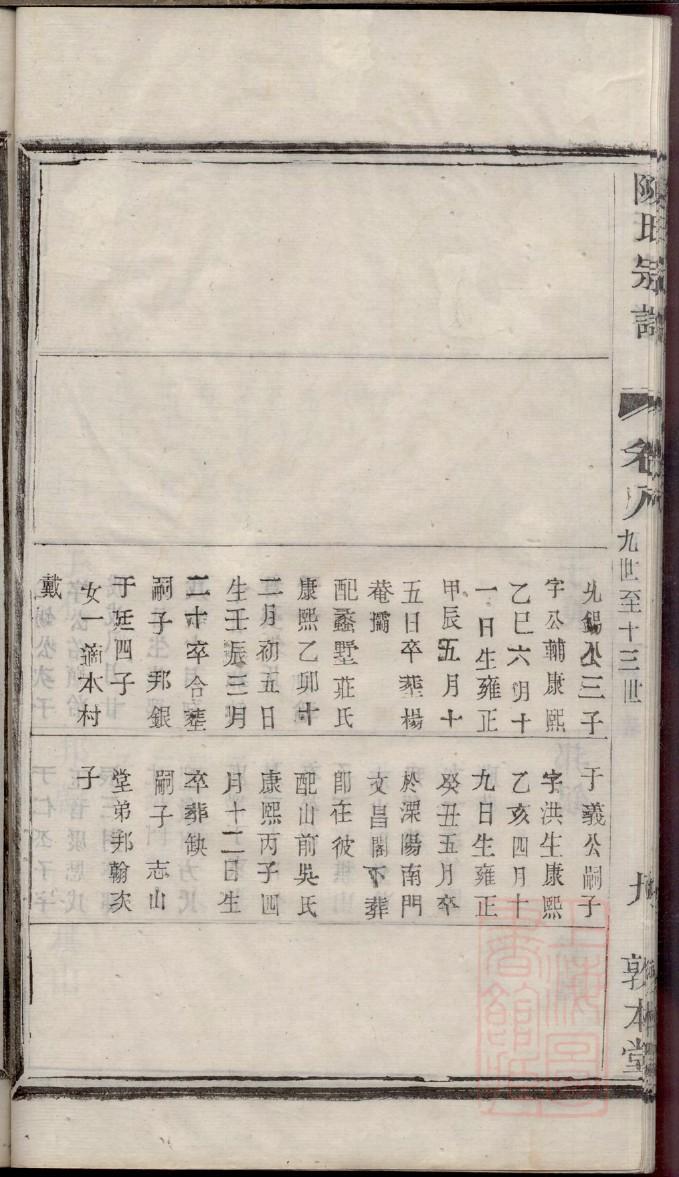 陳氏宗譜
卷八
九世至十三世
九
敦本堂
允錫公三子
字公輔康熙
乙巳六月十
一日生雍正
甲辰五月十
五日卒塟楊
菴壩
配蠡墅莊氏
康熙乙卯十
二月初五日
生壬辰三月
二十卒合塟
嗣子 邦銀
于廷四子
女一適本村
戴
于義公嗣子
字洪生康熙
乙亥四月十
九日生雍正
癸丑五月卒
於溧陽南門
文昌閣下葬
即在彼
配山前吳氏
康熙丙子四
月十二日生
卒葬缺
嗣子 志山
堂弟邦翰次
子